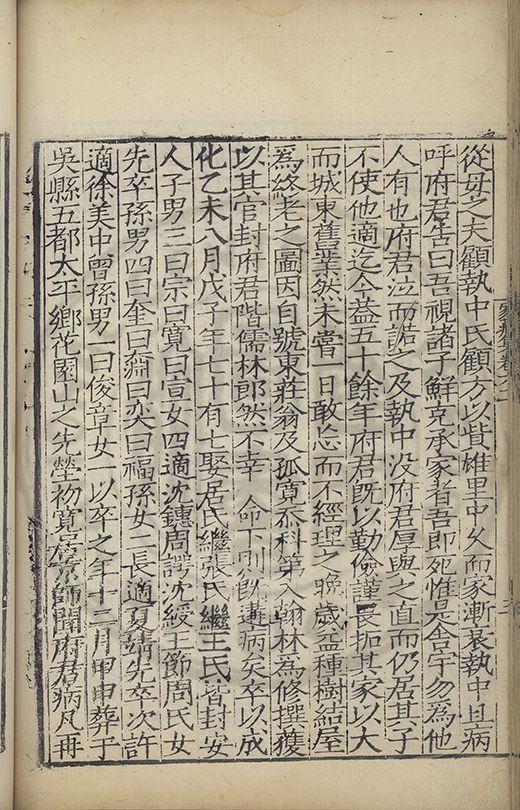 從母之夫顧執中氏顧方以貲雄里中久而家漸衰執中且病
呼府君告曰吾視諸子鮮克承家者吾即死惟是舍宇勿為他
人有也府君泣而諾之及執中没府君厚與之直而仍居其子
不使他適迄今益五十餘年府君既以勤儉謹長拓其家以大
而城東舊業然未嘗一日敢忘而不經理之晚歲益種樹結屋
為終老之圖因自號東莊翁及孤寬忝科第入翰林為修撰獲
以其官封府君階儒林郎然不幸 命下則既遘病矣卒以成
化乙未八月戊子年七十有七娶居氏繼張氏繼王氏皆封安
人子男三曰宗曰寬曰宣女四適沈鏸周諤沈綬王節周氏女
先卒孫男四曰奎曰奫曰奕曰福孫女二長適夏靖先卒次許
適徐美中曾孫男一曰俊章女一以卒之年十二月甲申葬于
吳縣五都太平鄉花園山之先塋初寬居京師聞府君病凡再